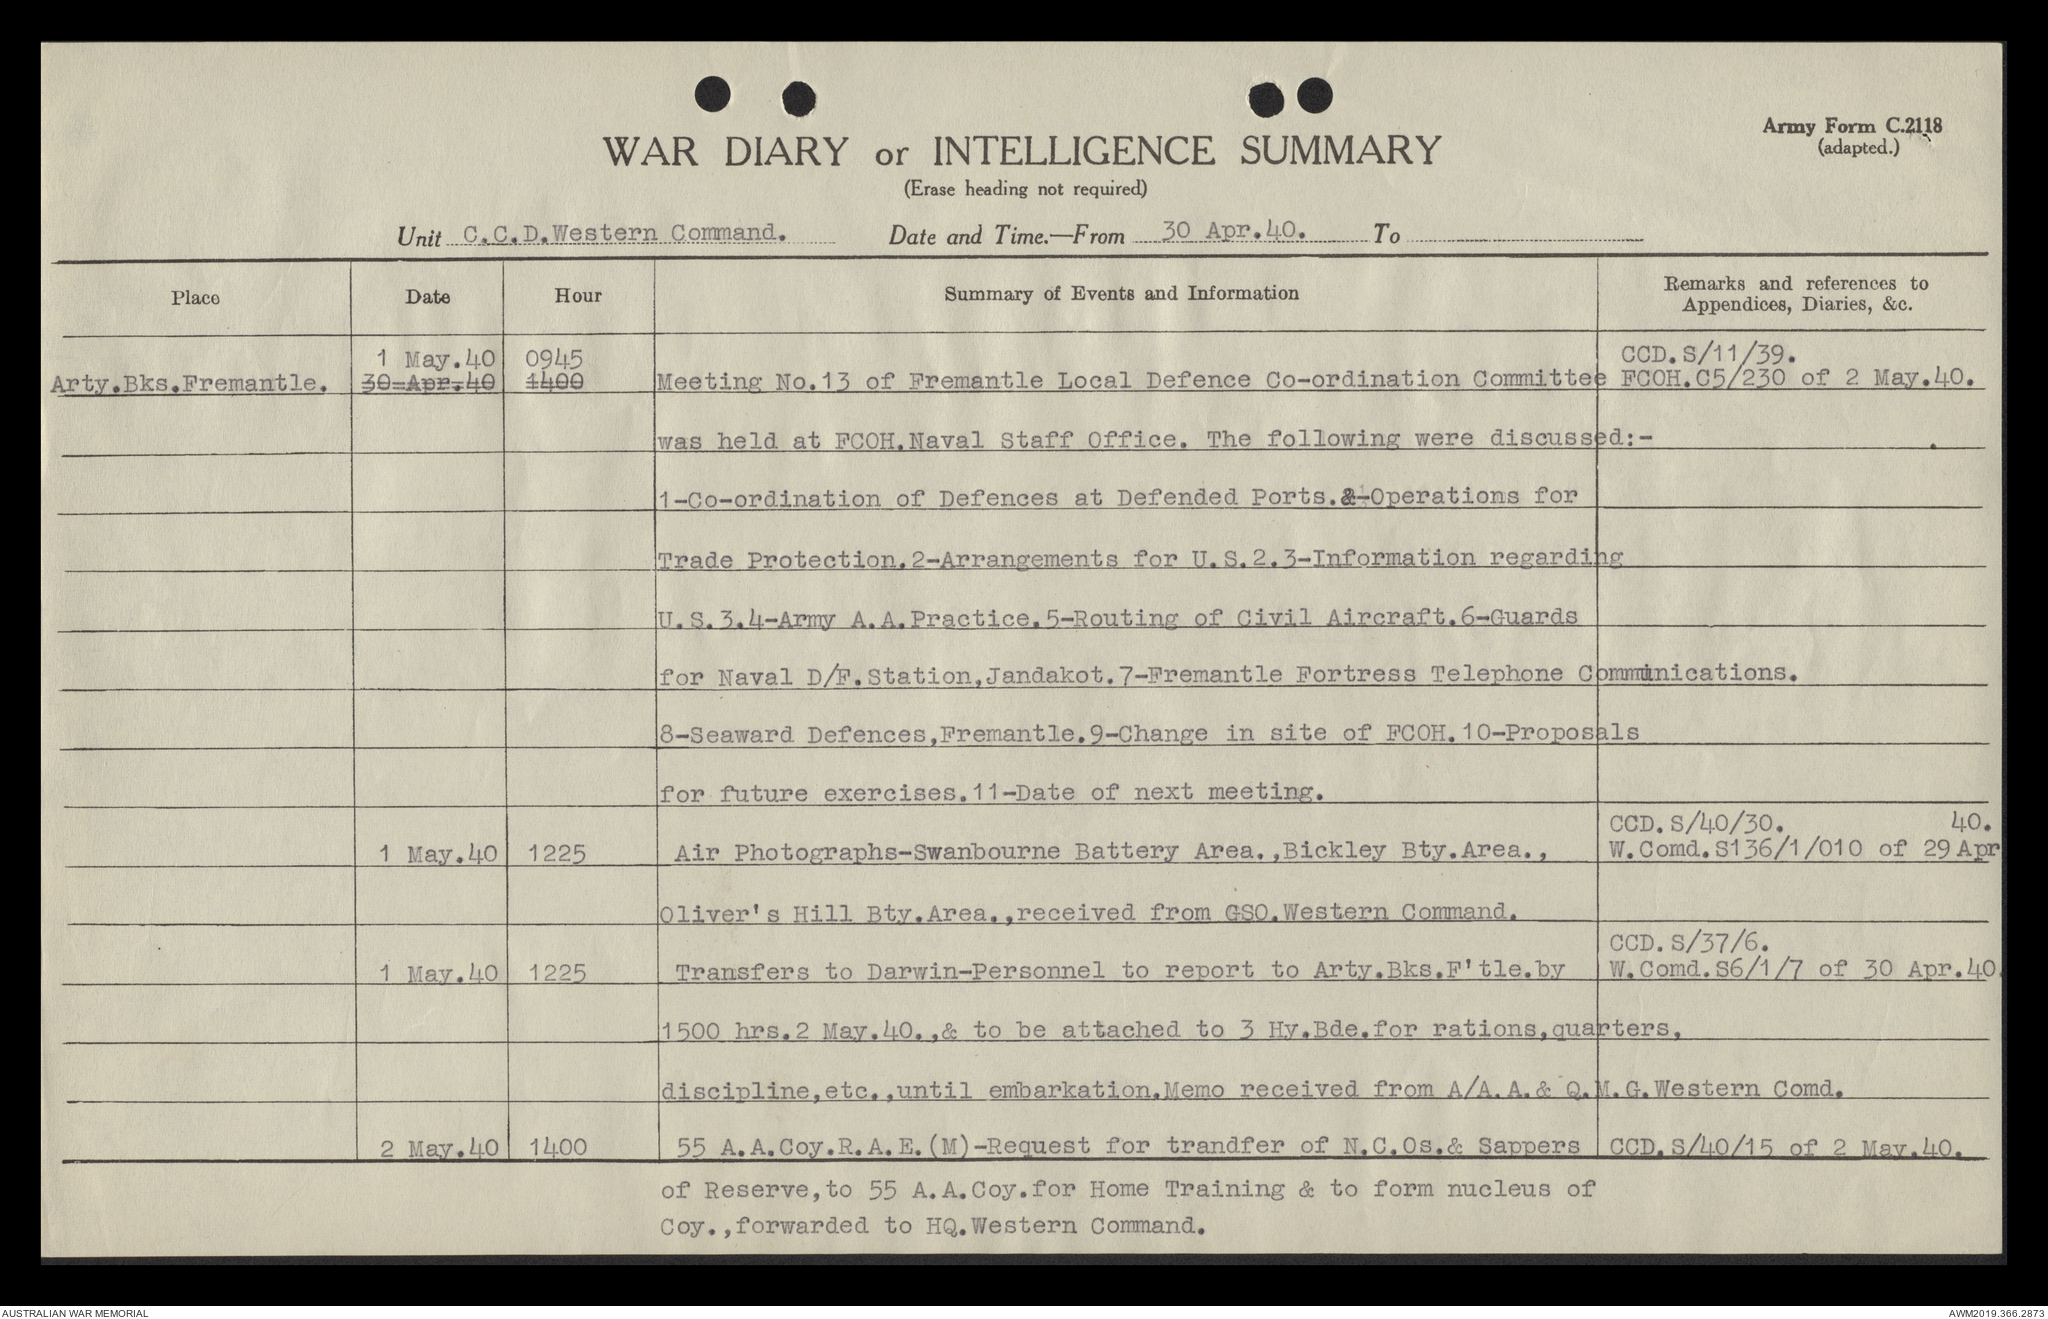 Army Form C.2118
(adapted.)
WAR DIARY or INTELLIGENCE SUMMARY
(Erase heading not required)
Unit C.C.D.Western Command. Date and Time.—From 30 Apr.40. To
Place Date Hour Summary of Events and Information Remarks and references to
Appendices, Diaries, &c.
1 May.40 0945 CCD.S/11/39.
Arty.Bks.Fremantle. 30-Apr.40 1400 Meeting No.13 of Fremantle Local Defence Co-ordination Committee FCOH.C5/230 of 2 May.40.
was held at FCOH.Naval Staff Office. The following were discussed:-
1-Co-ordination of Defences at Defended Ports.&-Operations for
Trade Protection.2-Arrangements for U.S.2.3-Information regarding
U.S.3.4-Army A.A.Practice.5-Routing of Civil Aircraft.6-Guards
for Naval D/F.Station,Jandakot.7-Fremantle Fortress Telephone Communications.
8-Seaward Defences,Fremantle.9-Change in site of FCOH.10-Proposals
for future exercises.11-Date of next meeting.
CCD.S/40/30. 40.
1 May.40 1225 Air Photographs-Swanbourne Battery Area.,Bickley Bty.Area., W.Comd.S136/1/010 of 29 Apr
Oliver's Hill Bty.Area.,received from GSO.Western Command.
CCD.S/37/6.
1 May.40 1225 Transfers to Darwin-Personnel to report to Arty.Bks.F'tle.by W.Comd.S6/1/7 of 30 Apr.40.
1500 hrs.2 May.40.,& to be attached to 3 Hy.Bde.for rations,quarters,
discipline,etc.,until embarkation.Memo received from A/A.A.& Q.M.G.Western Comd.
2 May.40 1400 55 A.A.Coy.R.A.E.(M)-Request for trandfer of N.C.Os.& Sappers CCD.S/40/15 of 2 May.40.
of Reserve,to 55 A.A.Coy.for Home Training & to form nucleus of
Coy.,forwarded to HQ.Western Command.
AUSTRALIAN WAR MEMORIAL AWM2019.366.2873